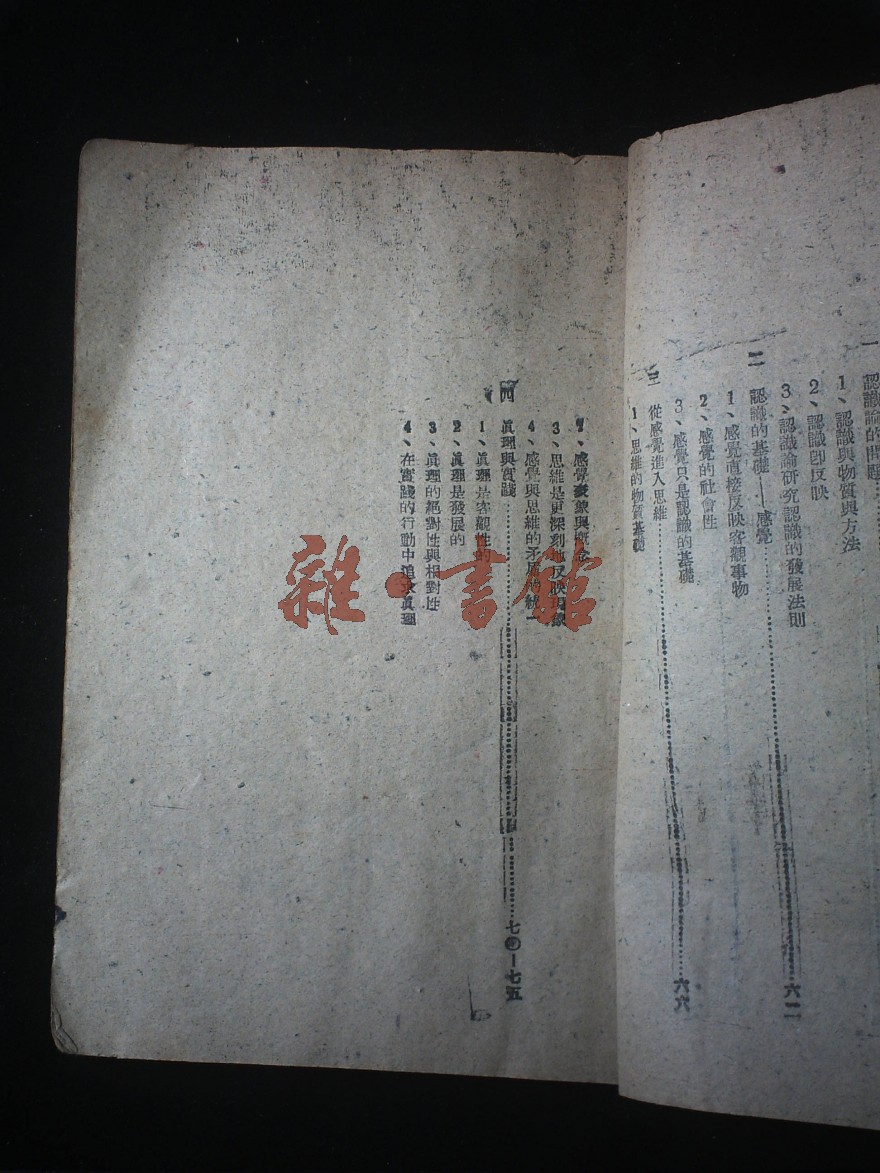 一 認識論的問題
1、認識與物質與方法
2、認識卽反映
3、認識論研究認識的發展法則
二 認識的基礎——感覺………六二
1、感覺直接反映客觀事物
2、感覺的社會性
3、感覺只是認識的基礎
三 從感覺進入思維………六六
1、思維的物質基礎
2、感覺表象與概念
3、思維是更深刻地反映現象
4、感覺與思維的矛盾的統一
四 眞理與實踐………七〇—七五
1、眞理是客觀性的
2、眞理是發展的
3、眞理的絕對性與相對性
4、在實踐的行動中追求眞理
雜·書館